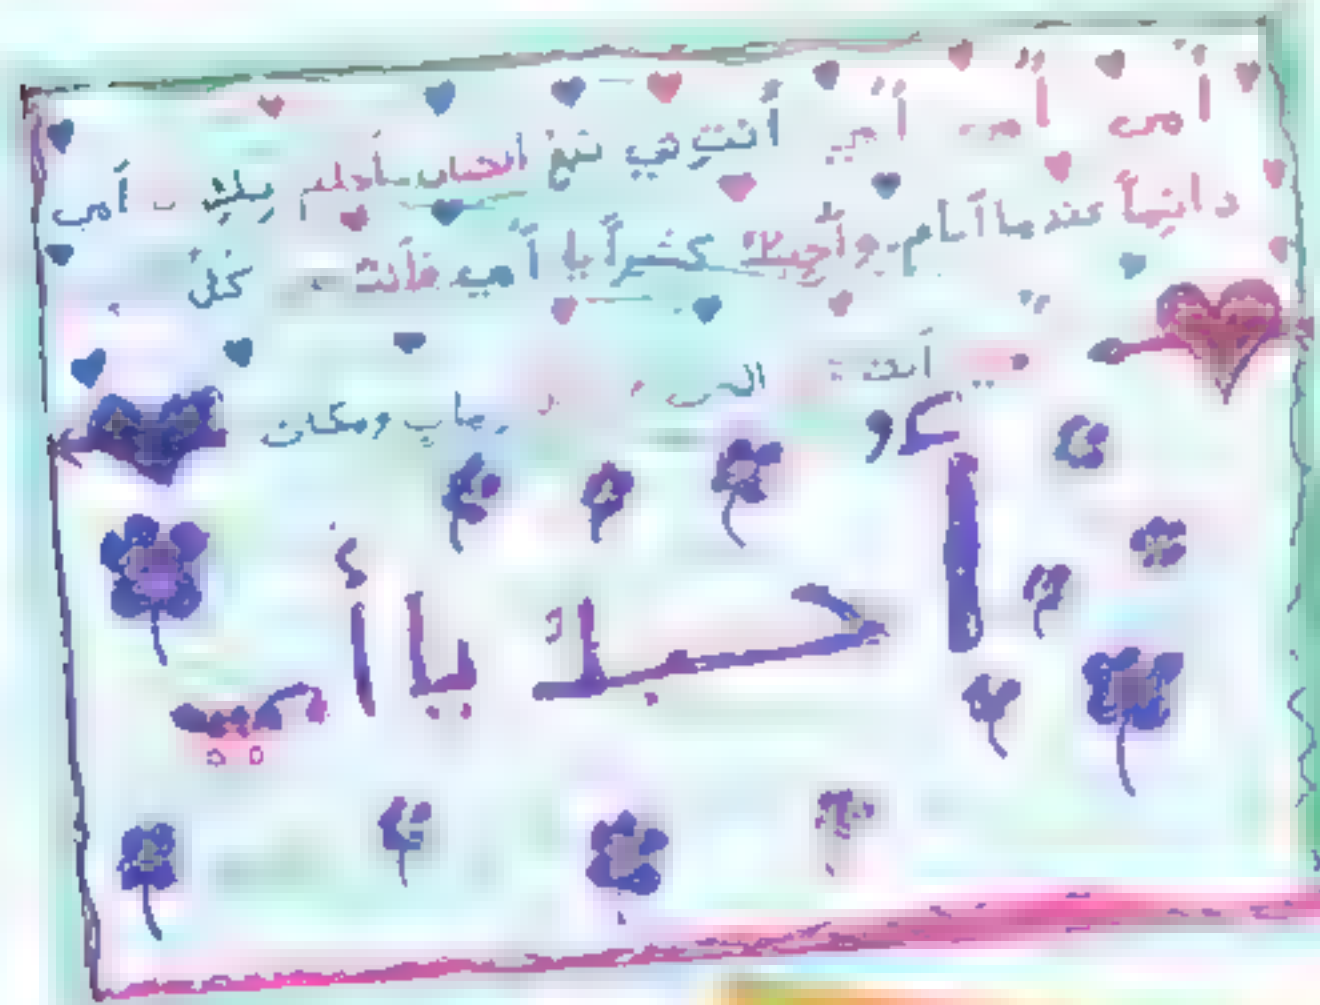 أمي أمي أمي أنت هي نبع الحنان سأحلم بك أمي
دائماً عندما أنام وأحبك كثيراً يا أمي فأنت كل
أنت
ومكان
أحبك يا أمي